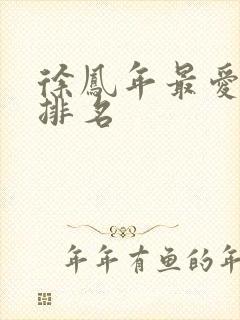 徐鳳年最愛
排名
年年有鱼的年